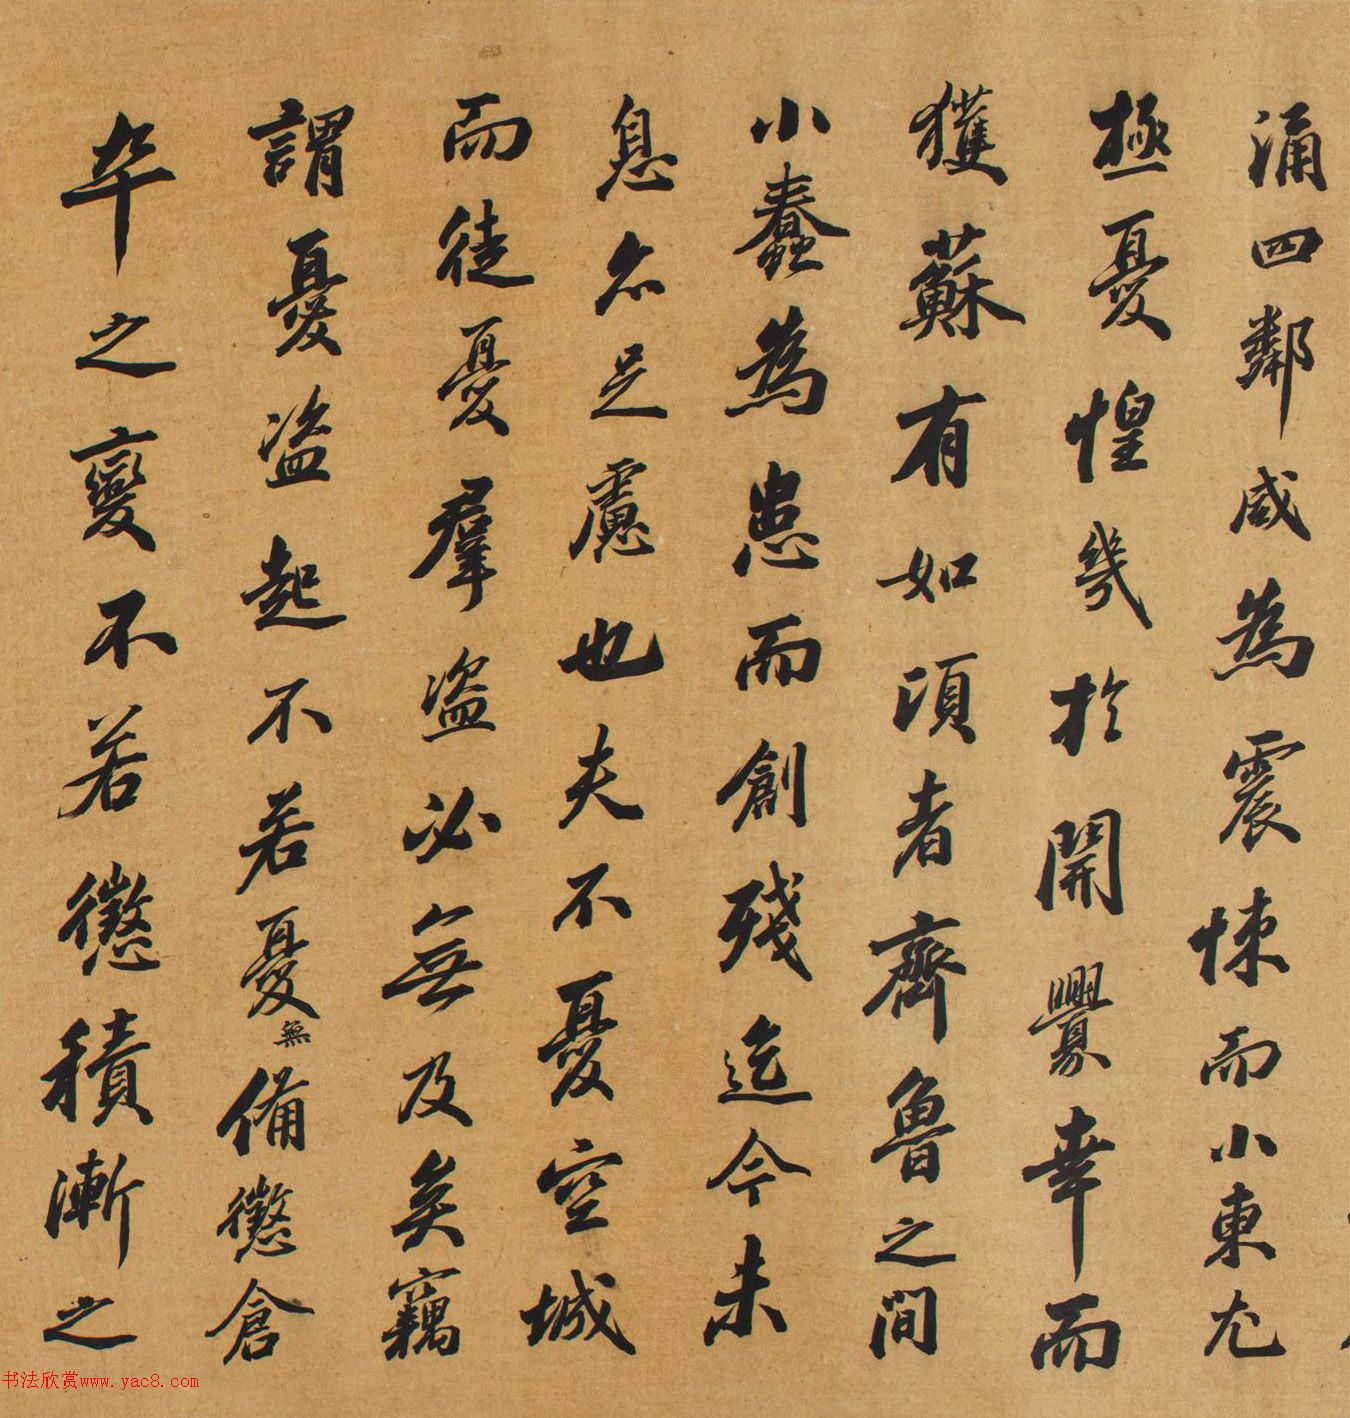 涌四鄰咸為震悚而小東尤
極憂惶幾於開釁幸而
獲蘇有如頃者齊魯之間
小蠢為患而創殘迄今未
息尒足慮也夫不憂空城
而徒憂羣盗必無及矣竊
謂憂盗起不若憂無備懲倉
卒之變不若懲積漸之
书法欣赏www.yac8.com